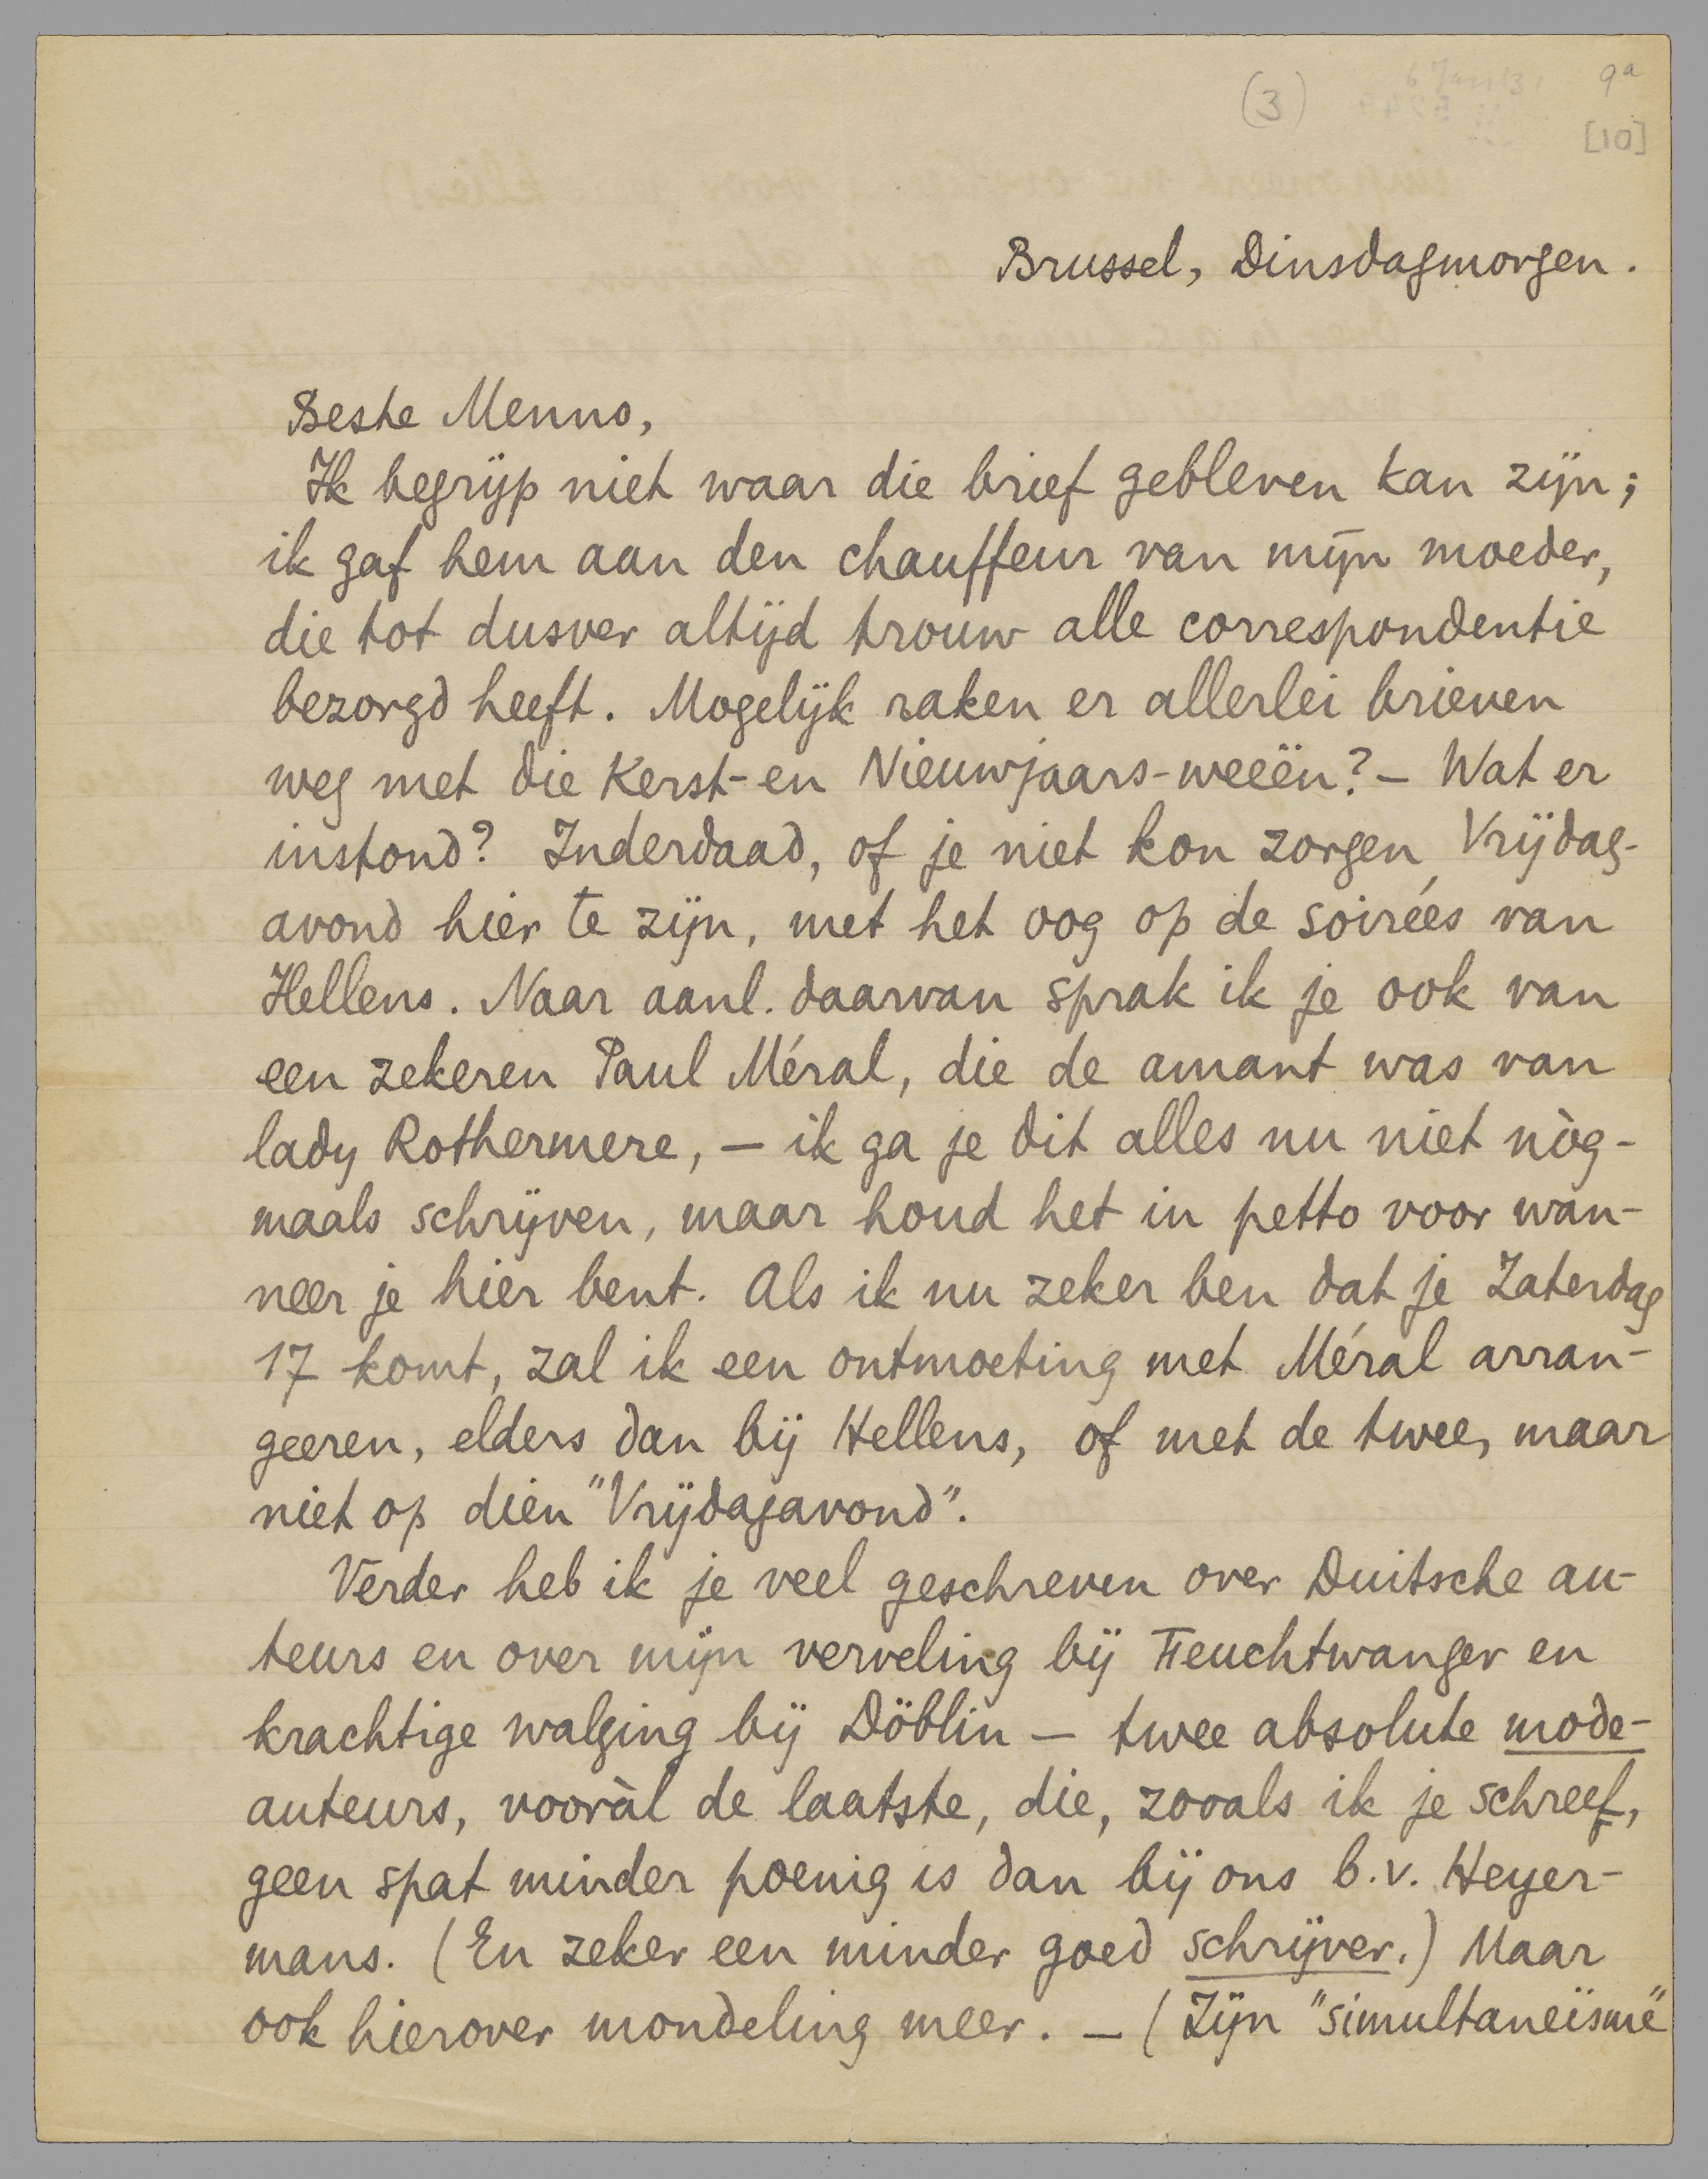 (3)
9a
[10]
Brussel, Dinsdagmorgen.
Beste Menno,
Ik begrijp niet waar die brief gebleven kan zijn;
ik gaf hem aan den chauffeur van mijn moeder,
die tot dusver altijd trouw alle correspondentie
bezorgd heeft. Mogelijk raken er allerlei brieven
weg met die Kerst- en Nieuwjaars-weeën? — Wat er
instond? Inderdaad, of je niet kon zorgen, Vrijdag-
avond hier te zijn, met het oog op de soirées van
Hellens. Naar aanl. daarvan sprak ik je ook van
een zekeren Paul Méral, die de amant was van
lady Rothermere, — ik ga je dit alles nu niet nòg-
maals schrijven, maar houd het in petto voor wan-
neer je hier bent. Als ik nu zeker ben dat je Zaterdag
17 komt, zal ik een ontmoeting met Méral arran-
geeren, elders dan bij Hellens, of met de twee, maar
niet op dien "Vrijdagavond".
Verder heb ik je veel geschreven over Duitsche au-
teurs en over mijn verveling bij Feuchtwanger en
krachtige walging bij Döblin — twee absolute mode-
auteurs, vooràl de laatste, die, zooals ik je schreef,
geen spat minder poenig is dan bij ons b.v. Heyer-
mans. (En zeker een minder goed schrijver.) Maar
ook hierover mondeling meer. — (Zijn "simultaneïsme"